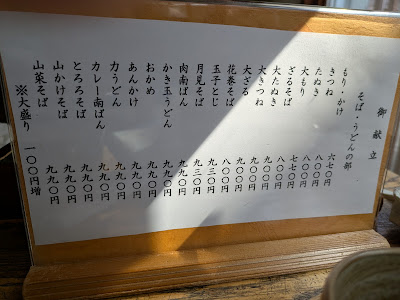 御献立
そば・うどんの部
もり・かけ 六七〇円
きつね 八〇〇円
たぬき 八〇〇円
大もり 七七〇円
ざるそば 七七〇円
大たぬき
大きつね
大ざる
花巻そば 八〇〇円
玉子とじ 九三〇円
月見そば 九三〇円
肉南ばん 九九〇円
かき玉うどん 九九〇円
おかめ 九九〇円
あんかけ 九九〇円
力うどん 九九〇円
カレー南ばん 九九〇円
とろろそば 九九〇円
山かけそば 九九〇円
山菜そば 九九〇円
※大盛り 一〇〇円増